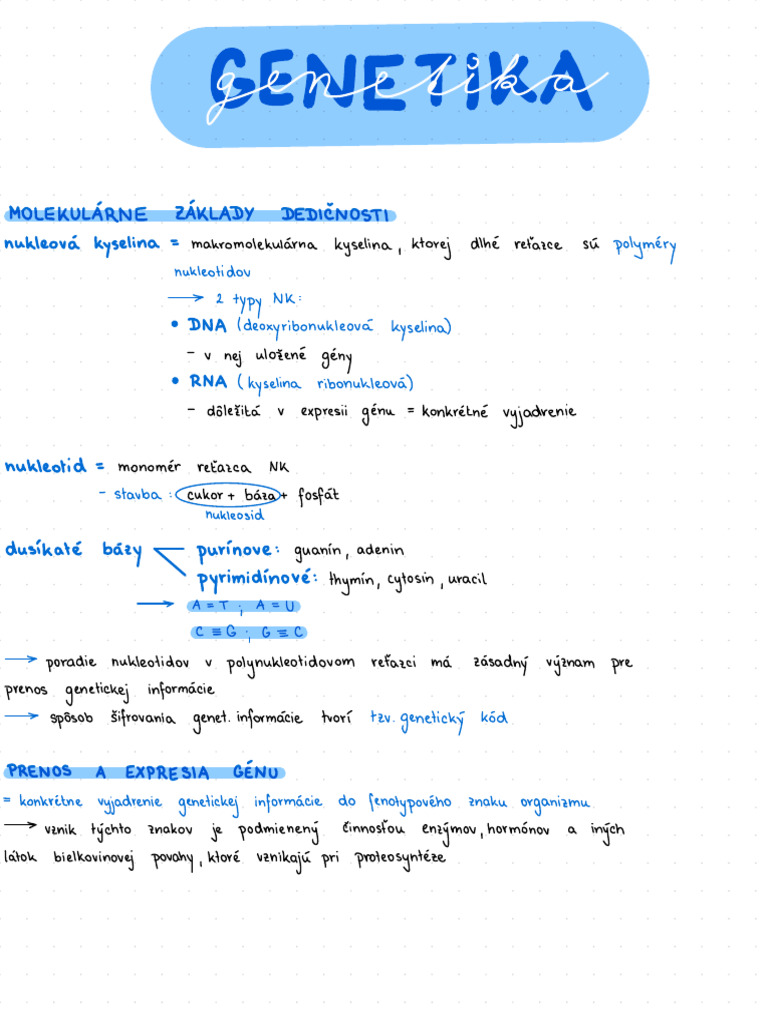 GENETIKA
genetika
MOLEKULÁRNE ZÁKLADY DEDIČNOSTI
nukleová kyselina = makromolekulárna kyselina, ktorej dlhé reťazce sú polyméry
nukleotidov
→ 2 typy NK:
• DNA (deoxyribonukleová kyselina)
- v nej uložené gény
• RNA (kyselina ribonukleová)
- dôležitá v expresii génu = konkrétné vyjadrenie
nukleotid = monomér reťazca NK
- stavba: cukor + báza + fosfát
nukleosid
dusíkaté bázy purínove: guanín, adenin
pyrimidínové: thymín, cytosin, uracil
→ A = T ; A = U
C ≡ G ; G ≡ C
→ poradie nukleotidov v polynukleotidovom reťazci má zásadný význam pre
prenos genetickej informácie
→ spôsob šifrovania genet. informácie tvorí tzv. genetický kód
PRENOS A EXPRESIA GÉNU
= konkrétne vyjadrenie genetickej informácie do fenotypového znaku organizmu
→ vznik týchto znakov je podmienený činnosťou enzýmov, hormónov a iných
látok bielkovinovej povahy, ktoré vznikajú pri proteosyntéze